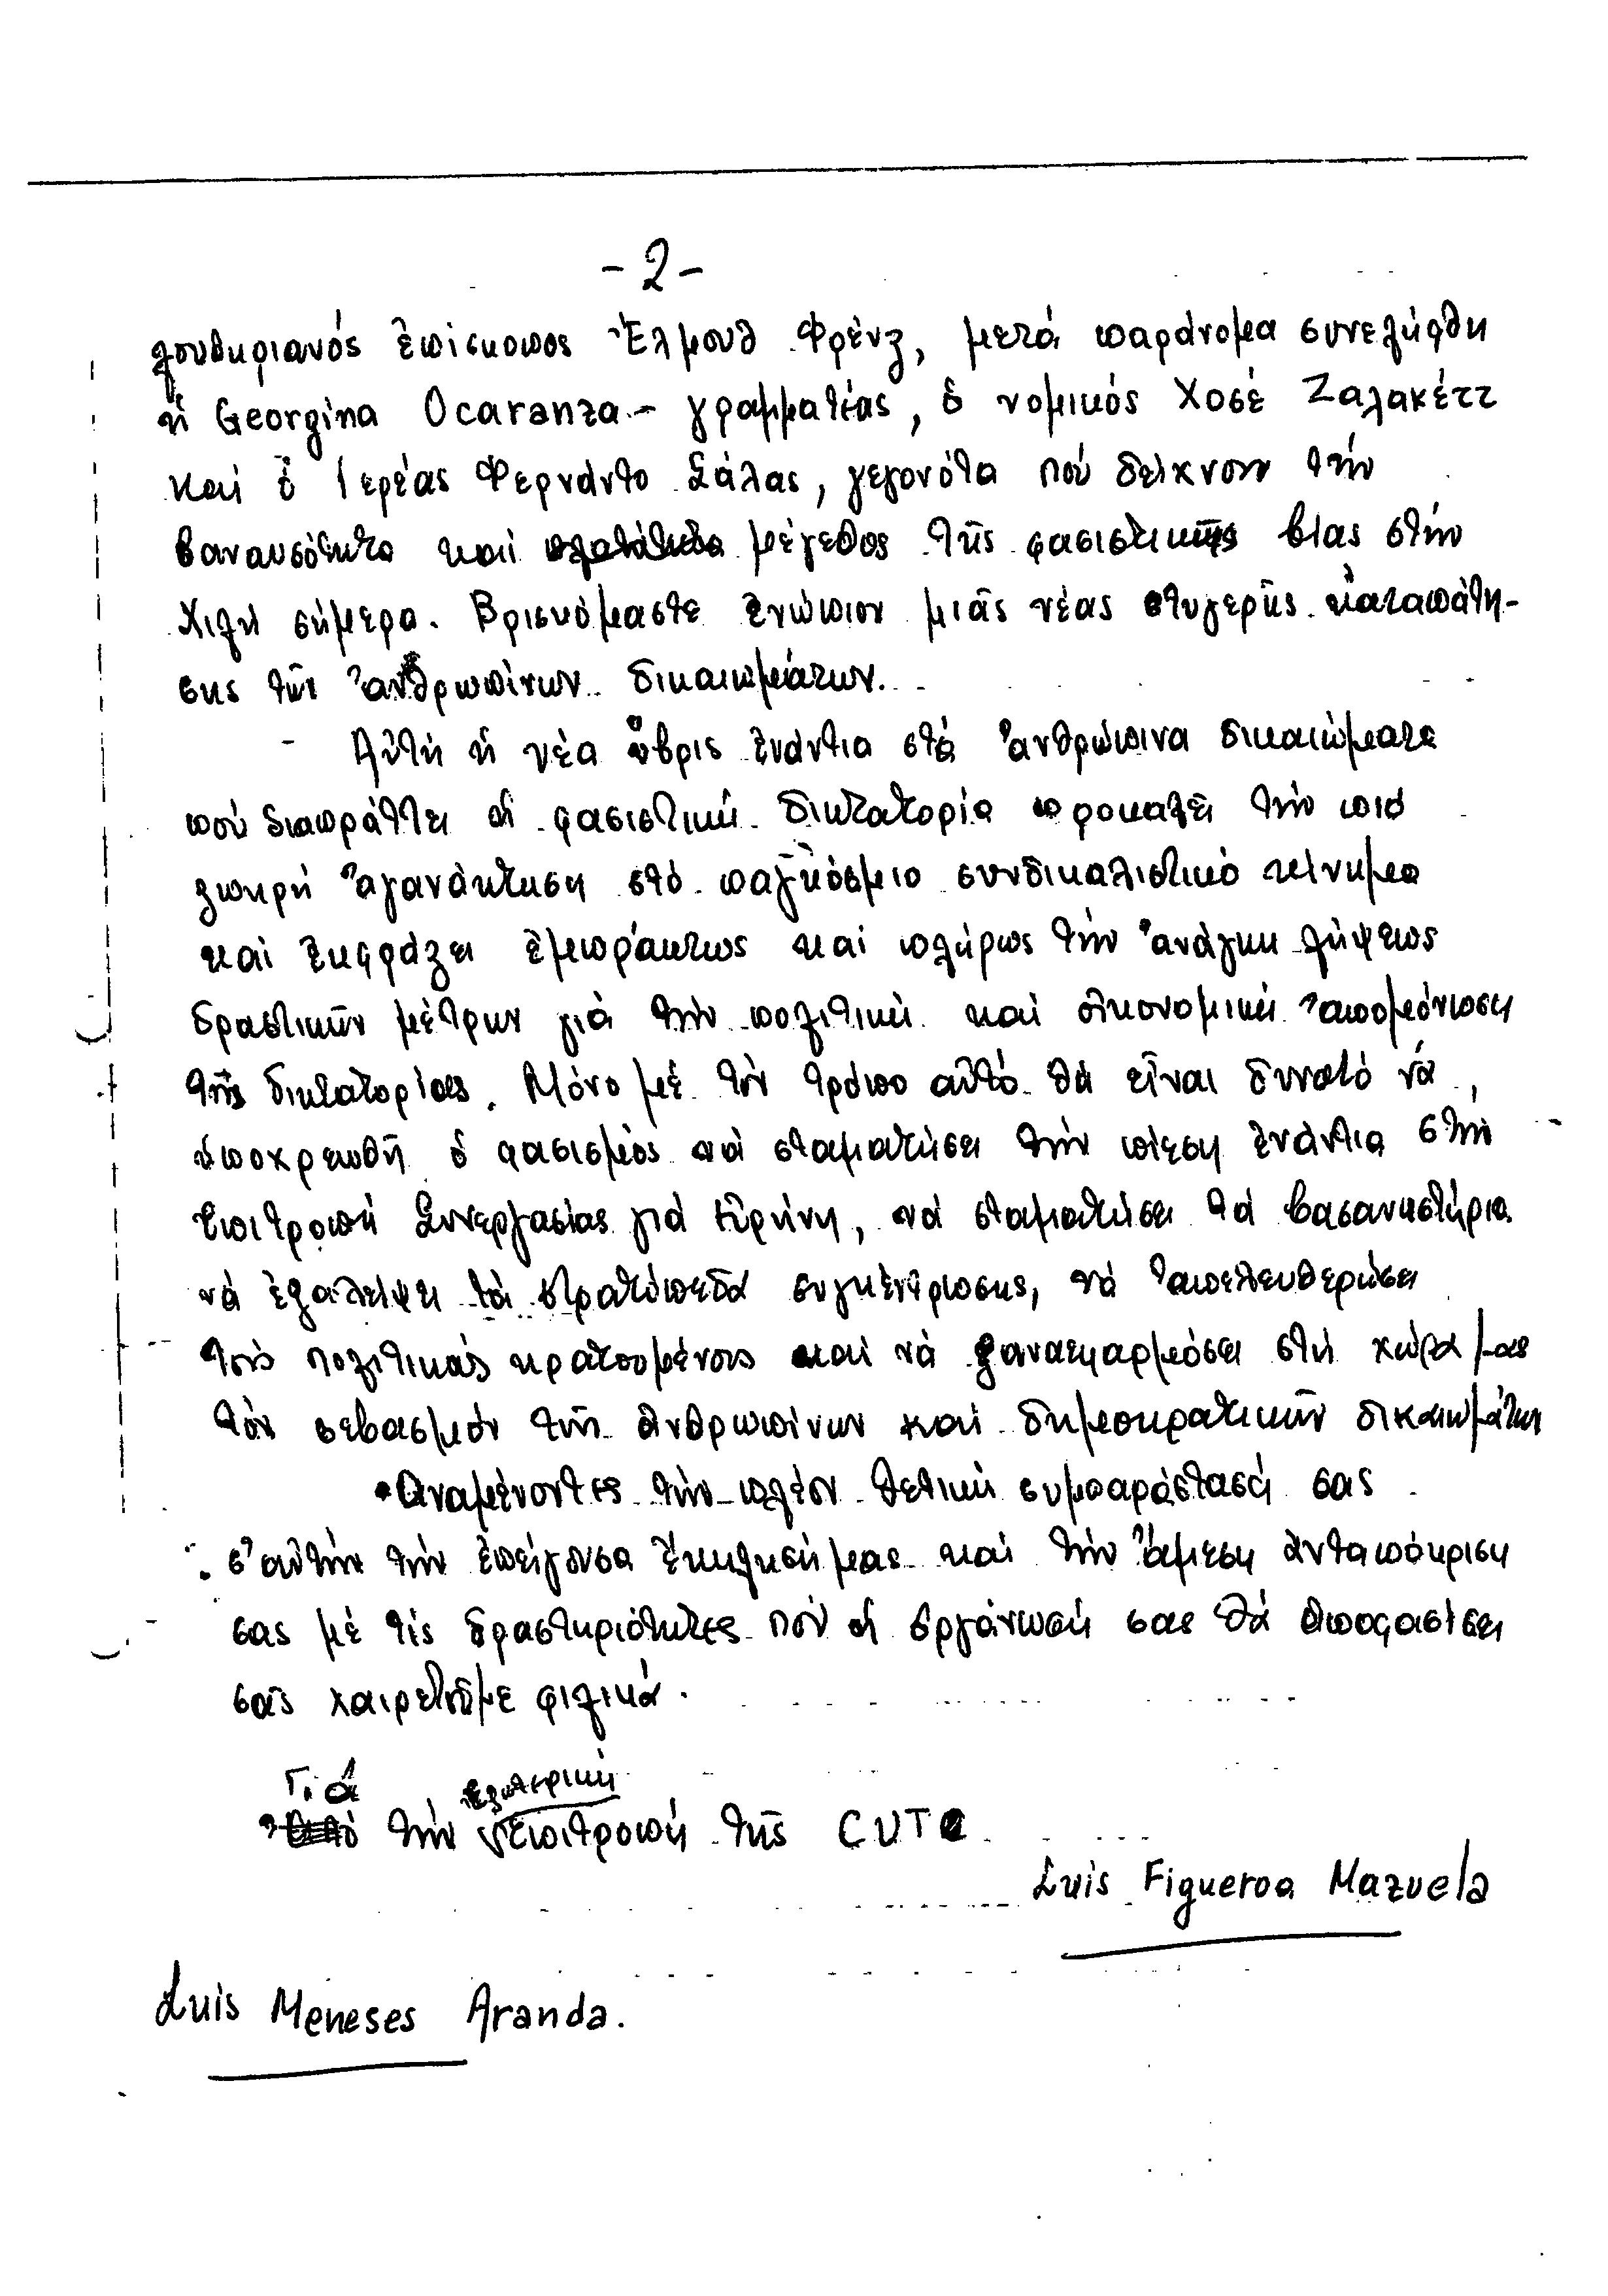 - 2 -
λουθηριανός ἐπίσκοπος Ἕλμουθ Φρένζ, μετά παράνομα συνελήφθη
ἡ Georgina Ocaranza - γραμματέας, ὁ νομικός Χοσέ Ζαλακέττ
καί ὁ ἱερέας Φερνάντο Σάλας, γεγονότα πού δείχνουν τήν
βαναυσότητα καί μέγεθος τῆς φασιστικῆς βίας στήν
Χιλή σήμερα. Βρισκόμαστε ἐνώπιον μιᾶς νέας στυγερῆς καταπάτη-
σης τῶν ἀνθρωπίνων δικαιωμάτων.
Αὐτή ἡ νέα ὕβρις ἐνάντια στά ἀνθρώπινα δικαιώματα
πού διαπράττει ἡ φασιστική δικτατορία προκαλεῖ τήν πιό
ζωηρή ἀγανάκτηση στό παγκόσμιο συνδικαλιστικό κίνημα
καί ἐκφράζει ἐμπράκτως καί πλήρως τήν ἀνάγκη λήψεως
δραστικῶν μέτρων γιά τήν πολιτική καί οἰκονομική ἀπομόνωση
τῆς δικτατορίας. Μόνο μέ τόν τρόπο αὐτό θά εἶναι δυνατό νά
ὑποχρεωθῆ ὁ φασισμός νά σταματήσει τήν πίεση ἐνάντια στήν
Ἐπιτροπή Συνεργασίας γιά Εἰρήνη, νά σταματήσει τά βασανιστήρια
νά ἐξαλείψει τά στρατόπεδα συγκέντρωσης, νά ἀπελευθερώσει
τούς πολιτικούς κρατουμένους καί νά ξαναεφαρμόσει στή χώρα μας
τόν σεβασμόν τῶν ἀνθρωπίνων καί δημοκρατικῶν δικαιωμάτων
Ἀναμένοντες τήν πλέον θετική συμπαράστασή σας
σ' αὐτήν τήν ἐπείγουσα ἔκκλησή μας καί τήν ἄμεση ἀνταπόκριση
σας μέ τίς δραστηριότητες πού ἡ ὀργάνωσή σας θά ἀποφασίσει
σᾶς χαιρετοῦμε φιλικά.
Γιά τήν ἐξωτερική ἐπιτροπή τῆς CUT
Luis Figueroa Mazuela
Luis Meneses Aranda.